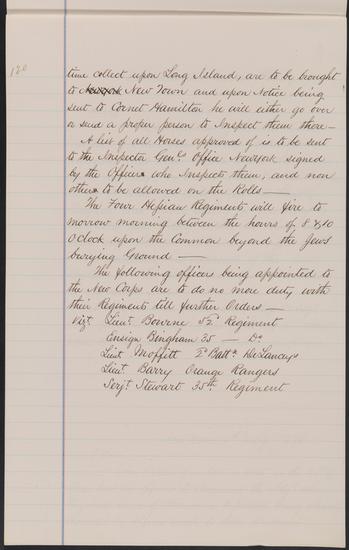 120
time collect upon Long Island, are to be brought
to Newyork New Town and upon Notice being
sent to Cornet Hamilton he will either go over
or send a proper person to Inspect them there—
A list of all Horses approved of is to be sent
to the Inspector Genls. Office Newyork signed
by the Officer who Inspects them, and non
other to be allowed on the Rolls—
The Four Hessian Regiments will fire to
morrow morning between the hours of 8 & 10
O'Clock upon the Common beyond the Jews
burying Ground —
The following officers being appointed to
the New Corps are to do no more duty with
their Regiments till further Orders —
Vizt. Lieut. Bourne 52d Regiment
Ensign Bingham 35 — Do.
Lieut. Moffitt 2d Battn. DeLanceys
Lieut. Barry Orange Rangers
Serjt. Stewart 35th Regiment